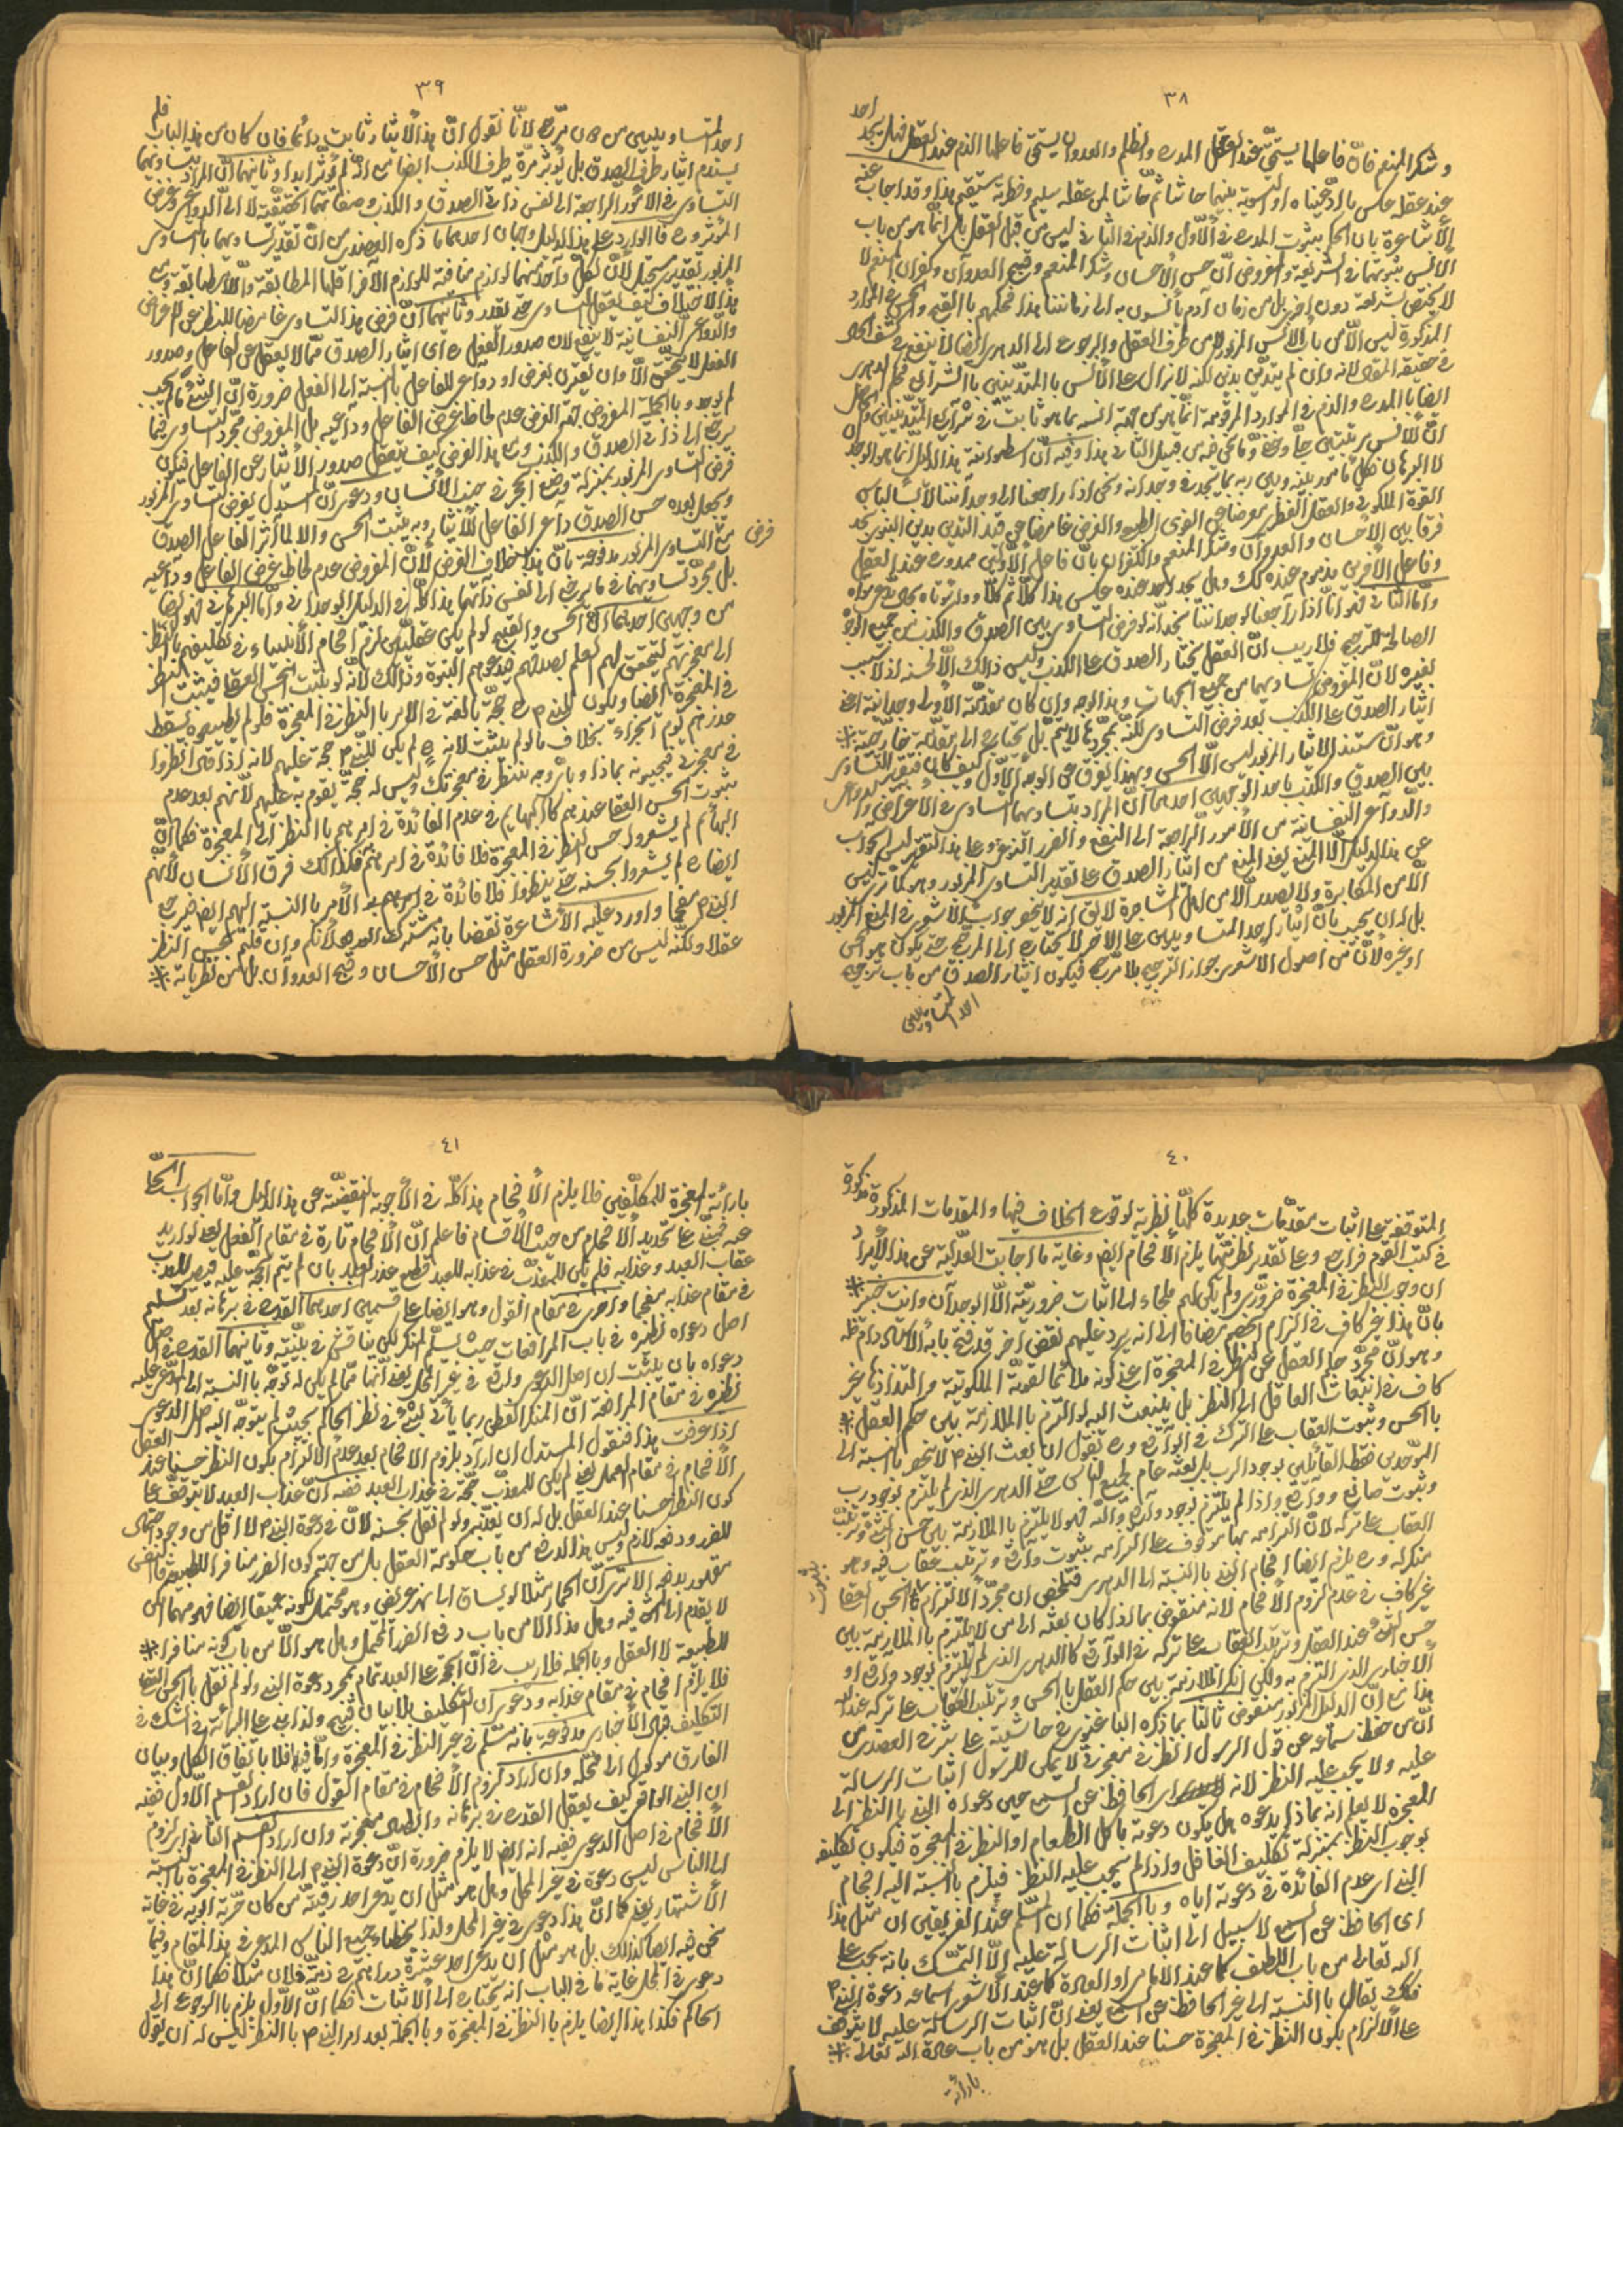 ٣٨
احد
وشكر المنعم فانّ فاعلها يستحقّ عند العقل المدح والظلم والعدوان يستحقّ فاعلها الذم عند العقل فهل يجد
عند عقله عكس ما ادّعيناه او التسوية بينهما حاشا ثمّ حاشا لمن عقله سليم وفطرته مستقيم هذا وقد اجاب عنه
الأشاعرة بان الحكم بثبوت المدح في الأوّل والذم في الثاني ليس من قبل العقل بل انّما هو من باب
الأنس بثبوتهما في الشريعة والمفروض انّ حسن الأحسان وشكر المنعم وقبح العدوان وكفران المنعم لا
لا يختص بشريعة دون اخرى بل من زمان آدم يأنسون به الى زماننا هذا فحكمهم باالقبح والحسن في الموارد
المذكورة ليس الاّ من باب الأنس المزبور لا من طرف العقل والرجوع الى الدهرى ايضا لا ينفع في كشف الحال
في حقيقة المقال لانه وان لم يتديّن بدين لكنه لا يزال على الأنس باالمتدّينين باالشرائع فحكم الدهرى
ايضا باالمدح والذم في الموارد المرقومة انّما هو من جهة انسه بما هو ثابت في شرايع المتدّينين والحاصل
القوة الملكوتى والعقل الفطرى معرضا عن القوى الطبيعى والغرض غامضا عن قيد التدين بدين النبوى نجد
فرقا بين الأحسان والعدوان وشكر المنعم والكفران بانّ فاعل الأولين ممدوح عند العقل
وفاعل الأخرين مذموم عنده كك وهل يجد احد عنده عكس هذا كلاّ ثمّ كلاّ
وامّا الثاني فهو انّا اذا راجعنا لوجداننا نجد انّه لو فرض التساوى بين الصدق والكذب من جميع الوجوه
الصالحة للترجيح فلا ريب انّ العقل يختار الصدق على الكذب وليس ذالك الاّ لحسنه اذ لا سبب
لغيره لانّ المفروض تساويهما من جميع الجهات وهذا الوجه وان كان مقدمّته الأولى وجدانية اعنى
ايثار الصدق على الكذب بعد فرض التساوى لكنّه بمجرّدها لا يتمّ بل يحتاج الى مقدّمة خارجيّة
وهو انّ مستند الايثار المزبور ليس الاّ الحسن وبهذا يفرق عن الوجه الأوّل وكيف كان فتقرير التساوى
بين الصدق والكذب باحد الوجهين احدهما انّ المراد بتساويهما التساوى في الأعراض والدواعى
والدّواعى النفسانية من الأمور الراجعة الى النفع والضرر النوعى وعلى هذا التقرير ليس الجواب
عن هذا الدليل الاّ المنع يعنى المنع من ايثار الصدق على تقدير التساوى المزبور وهو كما ترى ليس
الاّ من المكابرة ولا يصدر الاّ من اهل المشاجرة
بل له ان يجيب بانّ ايثار احد المتساويين على الآخر لا يحتاج الى المرجح حتى يكون هو الحسن
او غيره لانّ من اصول الأشعرى جواز الترجيح بلا مرّجح فيكون ايثار الصدق من باب ترجيح
احد المتساويين
٣٩
احد المتساويين من دون مرّجح لانّا نقول انّ هذا الأيثار ثابت دائما فان كان من هذا الباب فلم
يستدم ايثار طرف الصدق بل يؤثر مرّة طرف الكذب ايضا مع انّه لم يؤثر ابدا وثانيهما انّ المراد بتساويهما
التساوى في الأمور الراجعة الى نفس ذاتى الصدق والكذب وصفاتهما الحقيقيّة لا الى الدواعى وغرض
المؤثر وح فالوارد على هذا الدليل وجهان احدهما ما ذكره العضدى من انّ تقدير تساويهما باالتساوى
المزبور تقدير مستحيل لأنّ لكلّ واحد منهما لوازم منافية للوازم الآخر اقلها المطابقة واللاّمطابقة ومع
هذا الاختلاف كيف يعقل التساوى حتى يقدر وثانيهما انّ فرض هذا التساوى غامضا للنظر عن الأغراض
والدّواعى النفسانية لا ينفع لان صدور الفعل ح اى ايثار الصدق ممّا لا يعقل عن الفاعل وصدور
الفعل لا يتحقّق الاّ وان يقترن بغرض او دواع للفاعل باالنسبة الى الفعل ضرورة انّ الشئ ما لم يجب
لم يوجد وباالجملة المفروض بحكم الغرض عدم لحاظ غرض الفاعل ودواعيه بل المفروض مجّرد التساوى فيما
يرجع الى ذاتى الصدق والكذب ومع هذا الفرض كيف يتعقل صدور الأيثار عن الفاعل فيكون
فرض التساوى المزبور بمنزلة وضع الحجر في جنب الأنسان ودعوى انّ المستدّل يفرض التساوى المزبور
ويجعل بعده حسن الصدق داعى الفاعل للأيثار وبه يثبت الحسن والا لما آثر الفاعل الصدق
فرض
مع التساوى المزبور مدفوعة بانّ هذا خلاف الفرض لأنّ المفروض عدم لحاظ غرض الفاعل وداعيه
بل مجرّد تساويهما في ما يرجع الى نفس ذاتهما هذا كلّه في الدليل الوجدانى وامّا البرهان فهو ايضا
من وجهين احدهما انّ الحسن والقبح لو لم يكن عقليّين لزم افحام الأنبياء في تكليفهم باالنظر
الى معجزتهم ليتحقق لهم العلم بصدقهم في دعويهم النبوة وذالك لأنّه لو يثبت الحسن العقلى فيثبت النظر
في المعجزة ايضا ويكون للنبى ح حجّة بالغة في الامر باالنظر في المعجزة فلو لم يطيعوه يسقط
عذرهم يوم الجزاء بخلاف ما لو لم يثبت لانه ح لم يكن للنبى حجة عليهم لانه اذا قال انظروا
في معجزتى فيجيبونه بماذا وبأى وجه ننظر في معجزتك وليس له حجة يقوم به عليهم لأنّهم بعد عدم
ثبوت الحسن العقلى عندهم كاالبهايم في عدم الفائدة في امرهم باالنظر الى المعجزة فكما انّ
البهائم لم يشعروا حسن النظر في المعجزة فلا فائدة في امرهم فكذالك فرق الأنسان لأنّهم
ايضا ح لم يشعروا بحسنه حتى ينظروا فلا فائدة في امرهم به
النبى مفحما واورد عليه الأشاعرة نقضا بانّه مشترك الورود لأنكم وان قلتم بحسن النظر
عقلا ولكنّه ليس من ضرورة العقل مثل حسن الأحسان وقبح العدوان بل من نظرياته
٤٠
المتوقفة على اثبات مقدّمات عديدة كلّها نظرية لوقوع الخلاف فيها والمقدمات المذكورة مذكورة
في كتب القوم فراجع وعلى تقدير نظريتّها يلزم الأفحام ايضا وغاية ما اجابت العدّلية عن هذا الأيراد
ان وجوب النظر في المعجزة ضرورّى ولم يكن لهم ملجاء الى اثبات ضروريّته الاّ الوجدان وانت خبير
بانّ هذا غير كاف في الزام الخصم مضافا الى انه يرد عليهم نقض اخر قد فتح بابه الأستاد دام ظله
وهو انّ مجرّد حكم العقل بحسن النظر في المعجزة اعنى كونه ملائما لقوته الملكوتية والتذاذها غير
كاف في انبعاث العاقل الى النظر بل ينبعث اليه لو التزم باالملازمة بين حكم العقل
باالحسن وثبوت العقاب على الترك في الواقع وح نقول ان بعث النبى لا ينحصر باالنسبة الى
الموّحدين فقط القائلين بوجود الرب بل بعثه عام لجميع الناس حتى الدهرى الذى لم يلتزم بوجود رب
وثبوت صانع وواقع واذا لم يلتزم بوجود واقع واله فهو لا يلتزم باالملازمة بين حسن الشئ وترتب
العقاب على تركه لانّ التزامه بها موقوف على التزامه بثبوت واقع وترتب عقاب فيه وهو
بثبوت
منكر له وح يلزم ايضا افحام النبى باالنسبة الى الدهرى فتلخص ان مجرّد الألتزام باالحسن العقلى
غير كاف في عدم لزوم الأفحام لانه منقوض بما اذا كان بعثه الى من لا يلتزم باالملازمة بين
حسن الشئ عند العقل وترتب العقاب على تركه في الواقع كاالدهرى الذى لم يلتزم بوجود واقع او
الأخبارى الذى التزم به ولكن انكر الملازمة بين حكم العقل باالحسن وترتب العقاب على تركه عند الله
هذا مع انّ الدليل المزبور منقوض ثالثا بما ذكره الباغنوى في حاشيته على شرح العضدى من
انّ من حفظ سمعه عن قول الرسول انظر في معجزتى لا يمكن للرسول اثبات الرسالة
عليه ولا يجب عليه النظر لانه اى الحافظ عن السمع حين دعواه النبى باالنظر الى
المعجزة لا يعلم انه بماذا يدعوه هل يكون دعوته باكل الطعام او النظر في المعجزة فيكون تكليفه
بوجوب النظر بمنزلة تكليف الغافل واذا لم يجب عليه النظر فيلزم باالنسبة اليه افحام
النبى اى عدم الفائدة في دعوته اياه وباالجملة فكما ان المسلّم عند الفريقين ان مثل هذا
اى الحافظ عن السمع لا سبيل الى اثبات الرسالة عليه الاّ التمسّك بانه يجب على
الله تعالى من باب اللطف كما عند الامامى او العادة كما عند الأشعرى اسماعه دعوة النبى
فكك يقال باالنسبة الى غير الحافظ عن السمع يعنى انّ اثبات الرسالة عليه لا يتوقف
على الألتزام بكون النظر في المعجزة حسنا عند العقل بل هو من باب عادة الله تعالى
بارائة
٤١
بارائة المعجزة للمكلّفين فلا يلزم الأفحام هذا كلّه في الأجوبة النقضيّة عن هذا الدليل وامّا الجواب الحلّى
عنه فيبتنى على تحديد الأفحام من حيث الأقسام فاعلم انّ الأفحام تارة في مقام الفعل يعنى لو اريد
عقاب العبد وعذابه فلم يكن للمعذّب في عذابه للعبد قطع عذر العبد بان لم يتم الحجّة عليه فيصير المعذب
في مقام عذابه مفحما واخرى في مقام القول وهو ايضا على قسمين احدهما القدح في برهانه بعد تسليم
اصل دعواه نظيره في باب المرافعات حيث يسلّم المنكر لكن يناقش في بيّنته وثانيهما القدح في اصل
دعواه بان يثبت ان اصل الدعوى واقع في غير المحل يعنى انّها ممّا لم يكن له توجّه باالنسبة الى المدّعى عليه
نظيره في مقام المرافعة انّ المنكر الفطن ربما يأتى بشئ في نظر الحاكم بحيث لم يتوجّه اليه اصل الدعوى
اذا عرفت هذا فنقول المستدل ان اراد بلزوم الافحام بعد عدم الالتزام بكون النظر حسنا عند العقل
الأفحام في مقام العمل يعنى لم يكن للمعذّب حجّة في عذاب العبد ففيه انّ عذاب العبد لا يتوقف على
كون النظر حسنا عند العقل بل له ان يعذّبه ولو لم نقل بحسنه لأنّ في دعوة النبى لا اقل من وجود احتمال
للضرر ودفعه لازم وليس هذا الدفع من باب حكومة العقل بل من جهة كون الضرر منافرا للطبيعة فالنفس
مقهور بدفعه الا ترى انّ الحمار مثلا لو يساق الى نهر عريض وهو محتمل لكونه عميقا ايضا فهو مهما امكن
لا يقدم الى المشى فيه وهل هذا الا من باب دفع الضرر المحتمل وهل هو الاّ من باب كونه منافرا
للطبيعة لا العقل وباالجملة فلا ريب في انّ الحجّة على العبد تمام بمجرد دعوة النبى ولو لم نقل باالحسن العقلى
فلا يلزم افحام في مقام عذابه ودعوى ان التكليف بلا بيان قبيح ولذا بنى على البرائة في الشك في
التكليف فهى الأخبارى مدفوعة بانه مسّلم في غير النظر في المعجزة وامّا فيها فلا باتّفاق الكل وبيان
الفارق موكول الى محلّه وان اراد لزوم الأفحام في مقام القول فان اراد القسم الأول ففيه
ان النبى الوافر كيف يعقل القدح في برهانه وابطال معجزته وان اراد القسم الثانى اى لزوم
الأفحام في اصل الدعوى ففيه انه ايضا لا يلزم ضرورة انّ دعوة النبى الى النظر في المعجزة باالنسبة
الى الناس ليس دعوة في غير المحل وهل هو مثل ان يدّعى احد رقيّة من كان حرّية ابويه في غاية
الأشتهار يعنى كما انّ هذا دعوى في غير المحل ولذا يخطئه جميع الناس المدعى في هذا المقام وفيما
نحن فيه ايضا كذالك بل هو مثل ان يدعى احد عشرة دراهم في ذمّة فلان مثلا فكما انّ هذا
دعوى في المحل غاية ما في الباب انه يحتاج الى الأثبات فكما انّ الأوّل يلزم باالرجوع الى
الحاكم فكذا هذا ايضا يلزم باالنظر في المعجزة وباالجملة بعد امر النبى باالنظر ليس له ان يقول